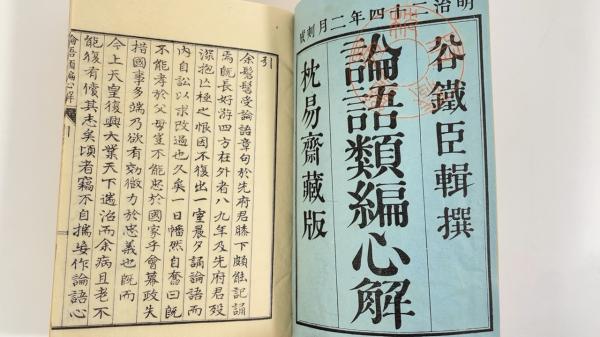 明治二十四年二月刻成
谷鐵臣輯撰
論語類編心解
枕易齋藏版
引
余髫髮受論語章句於先府君膝下頗能記誦
焉既長好游四方在外者八九年及先府君歿
深抱亾極之恨因不復出一室晨夕誦論語而
内自訟以求改過也久矣一日幡然自奮曰既
不能孝於父母豈不能忠於國家乎會幕政失
措國事多端乃欲有効微力於忠義也既而
今上天皇復興大業天下遄治而余病且老不
能復有償其志矣頃者竊不自揣作論語心
論語類編心解 引